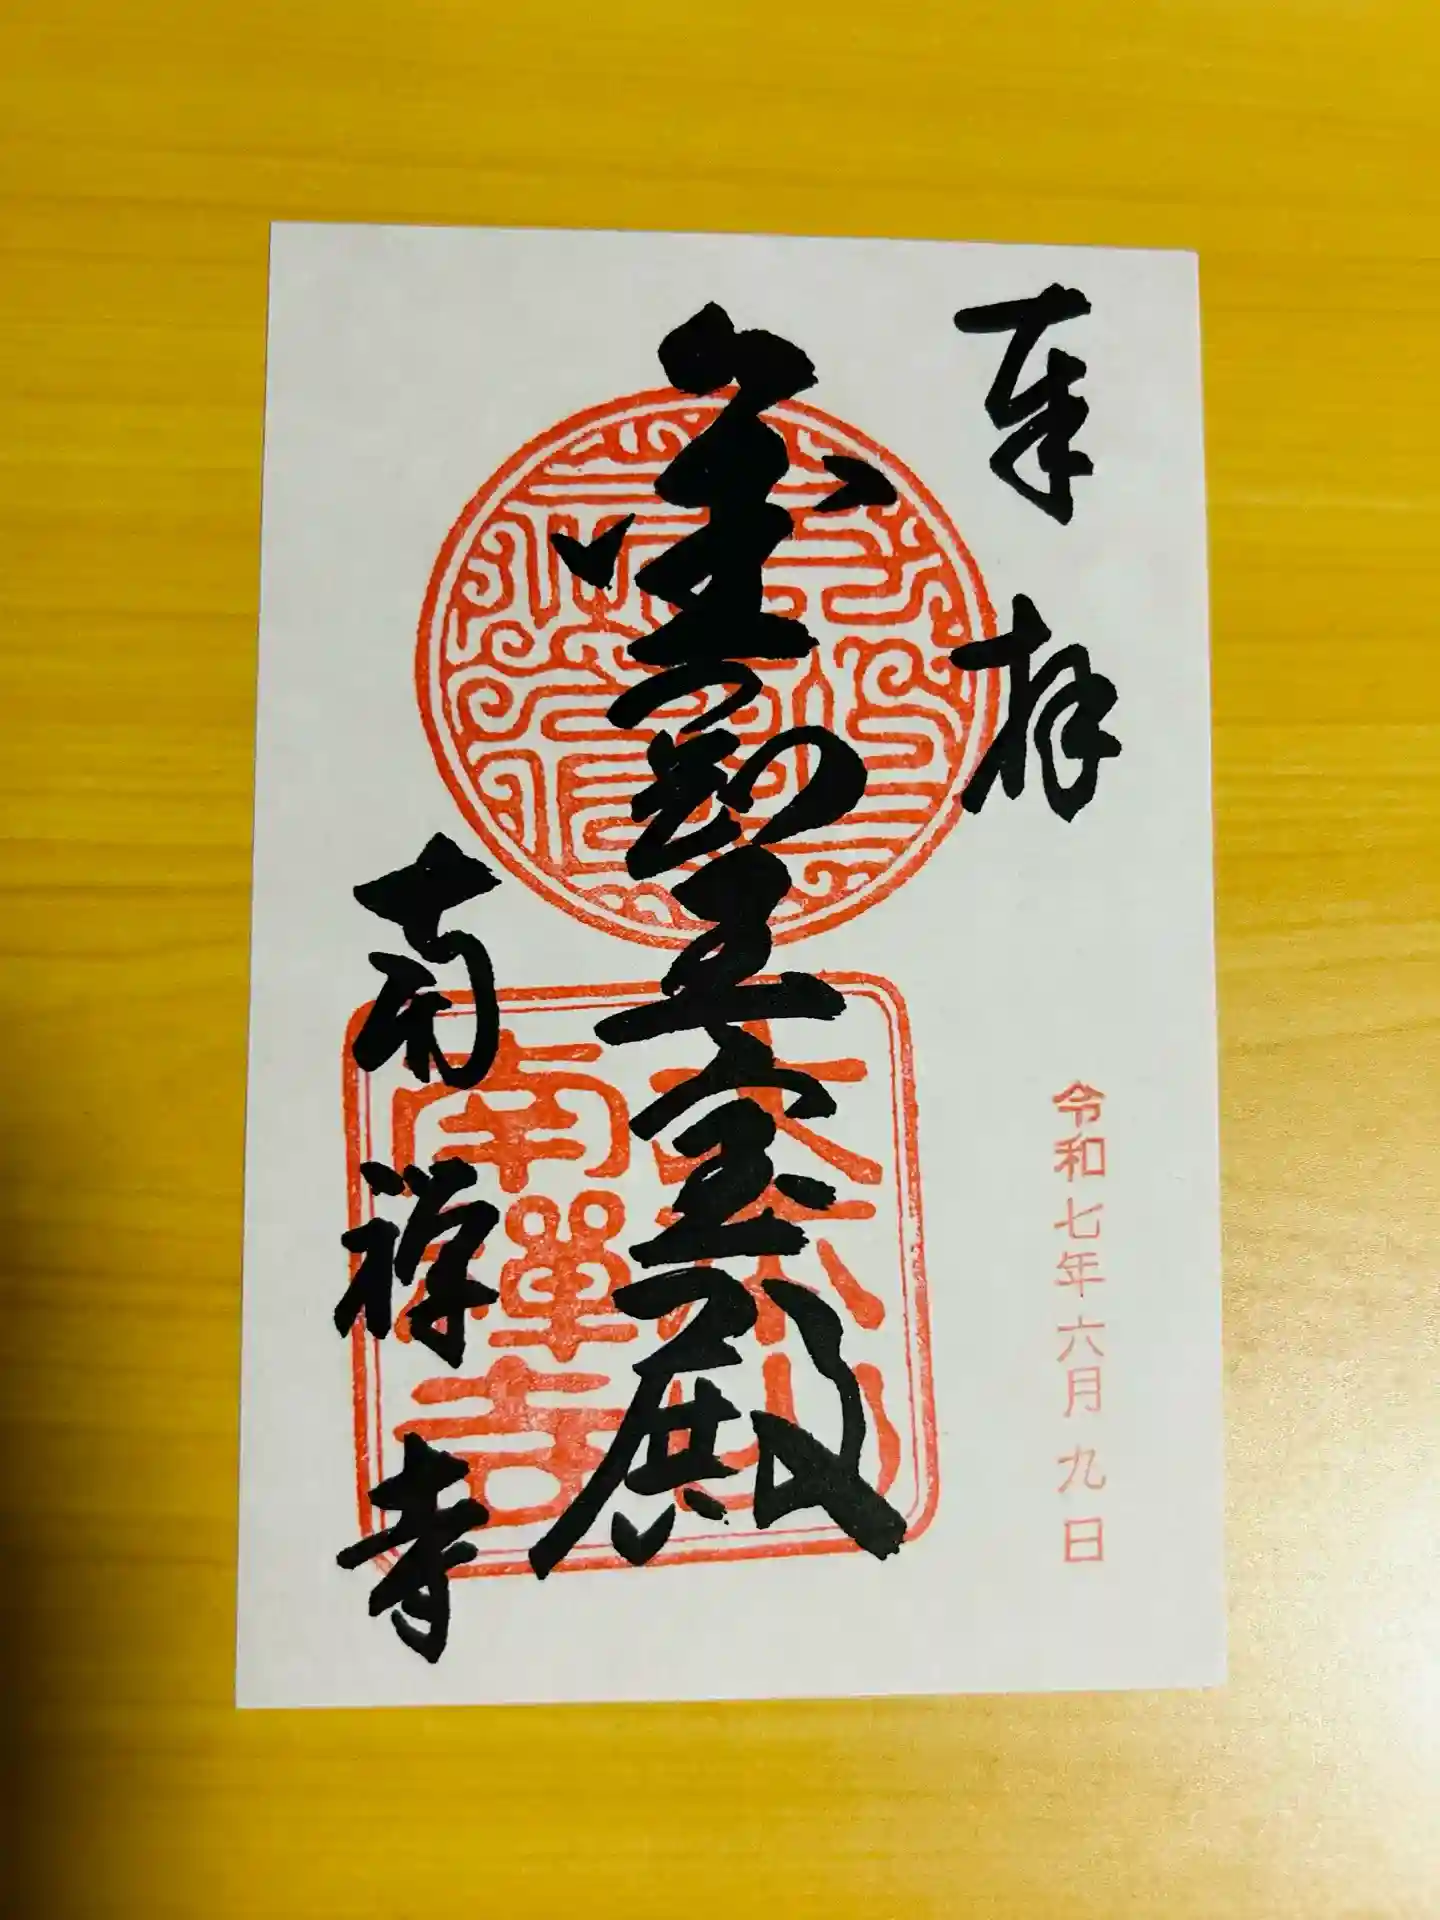 奉拝
令和七年六月九日
金剛王宝殿
南禅寺
南禪寺